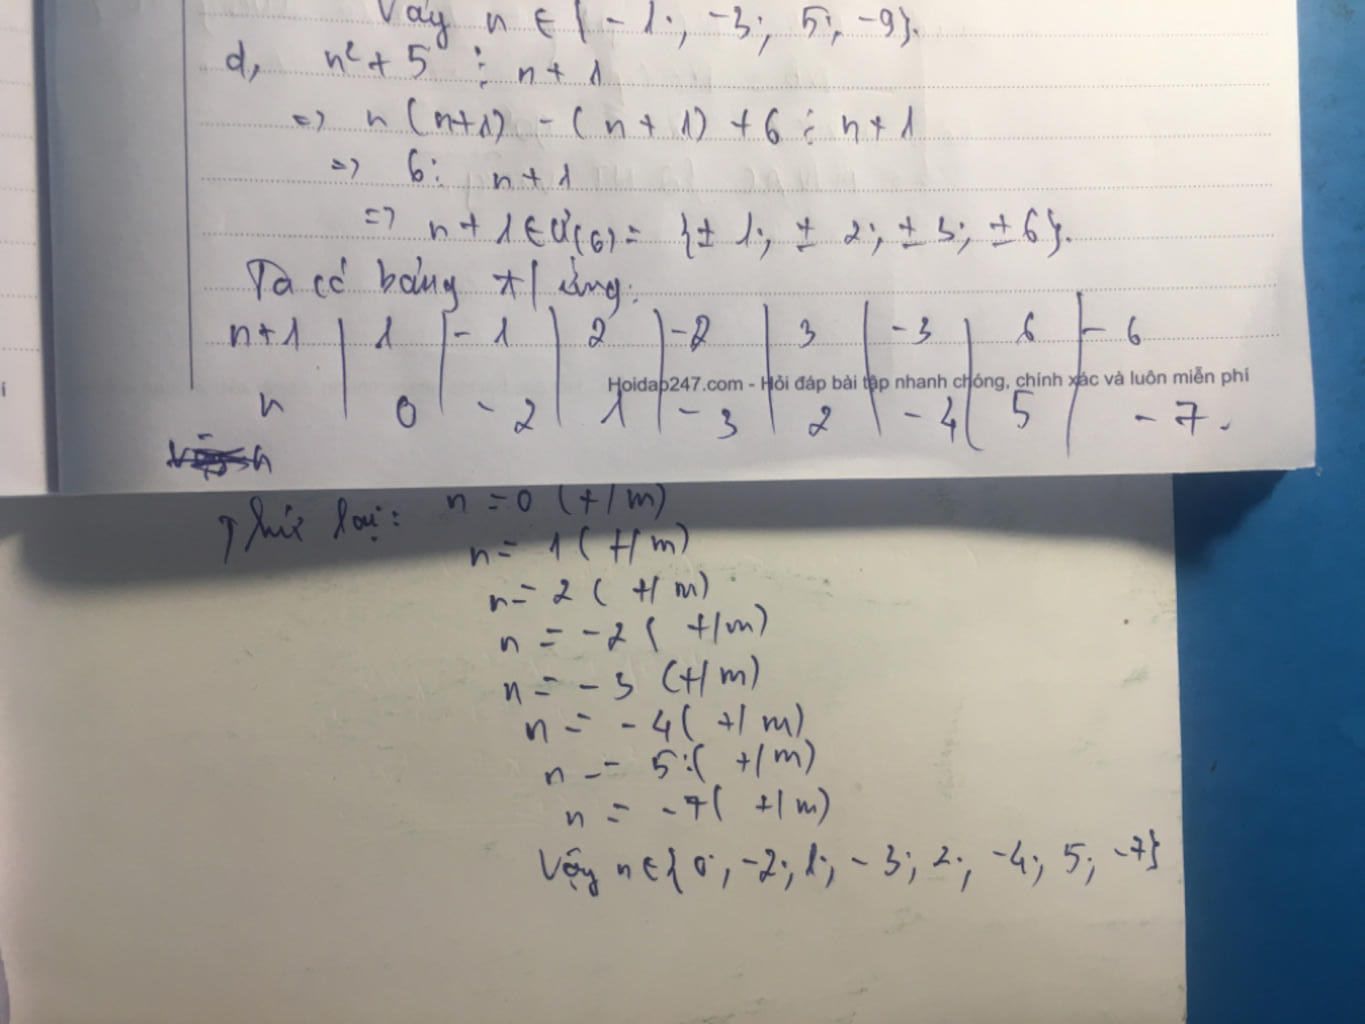 Vậy n ∈ { - 1; -3; 5; -9}.
d, n² + 5 ⋮ n + 1
=> n (n+1) - (n + 1) + 6 ⋮ n + 1
=> 6 ⋮ n + 1
=> n + 1 ∈ Ư(6) = {± 1; ± 2; ± 3; ± 6}.
Ta có bảng t/ ứng:
n+1 | 1 | - 1 | 2 | -2 | 3 | -3 | 6 | - 6
Hoidap247.com - Hỏi đáp bài tập nhanh chóng, chính xác và luôn miễn phí
n | 0 | - 2 | 1 | - 3 | 2 | - 4 | 5 | - 7.
Thử lại: n = 0 (t/m)
n = 1 (t/m)
n = 2 (t/m)
n = -2 (t/m)
n = - 3 (t/m)
n = - 4 (t/m)
n = 5 (t/m)
n = -7 (t/m)
Vậy n ∈ {0; -2; 1; - 3; 2; -4; 5; -7}